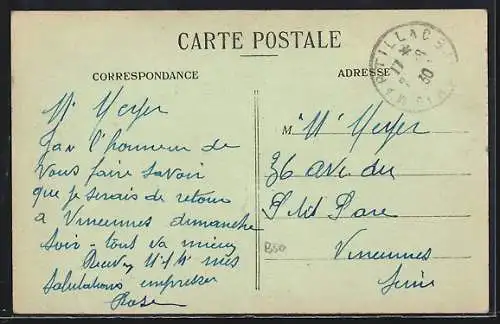 CARTE POSTALE
CORRESPONDANCE
ADRESSE
TILLAC
17
30
Mr Meyer
J'ai l'honneur de
Vous faire savoir
que je serais de retour
a Vincennes dimanche
soir - tout va mieux
Recevez mes
Salutations empressées
Rose
M Mr Meyer
36 ave du
Petit Parc
Vincennes
Seine